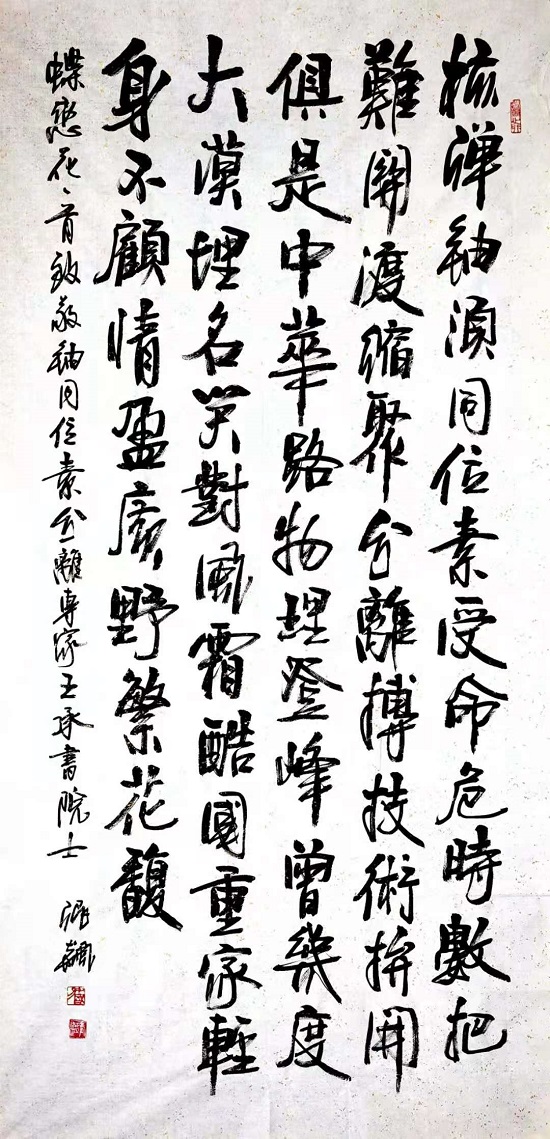 核彈鈾須同位素受命危時數把
難關渡縮聚分離搏技術拚開
俱是中華路物理登峰曾幾度
大漠埋名笑對風霜酷國重家輕
身不顧情盈廣野繁花馥
蝶戀花一首致敬鈾同位素分離專家王承書院士
張飆